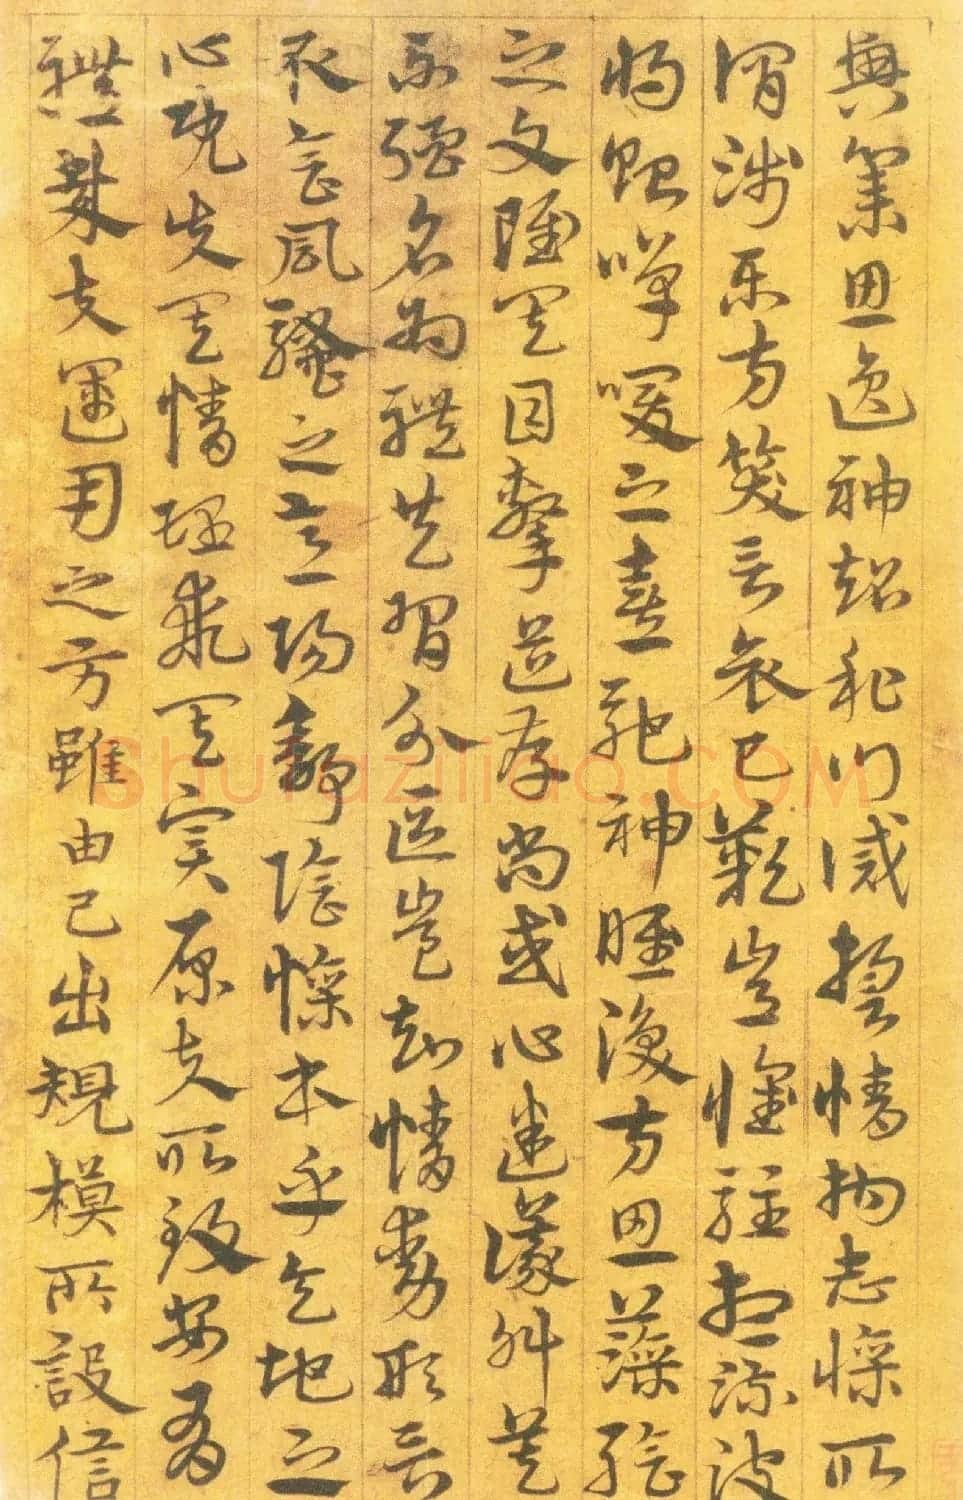 興集思逸神超私門誡誓情拘志慘所
謂涉樂方笑言哀已歎豈惟駐想流波
將貽嘽喛之奏馳神睢渙方思藻繪
之文雖其目擊道存尚或心迷議舛莫
不強名為體共習分區豈知情動形言
取會風騷之意陽舒陰慘本乎天地之
心既失其情理乖其實原夫所致安有
體哉夫運用之方雖由己出規模所設信
Shufaziliao.COM